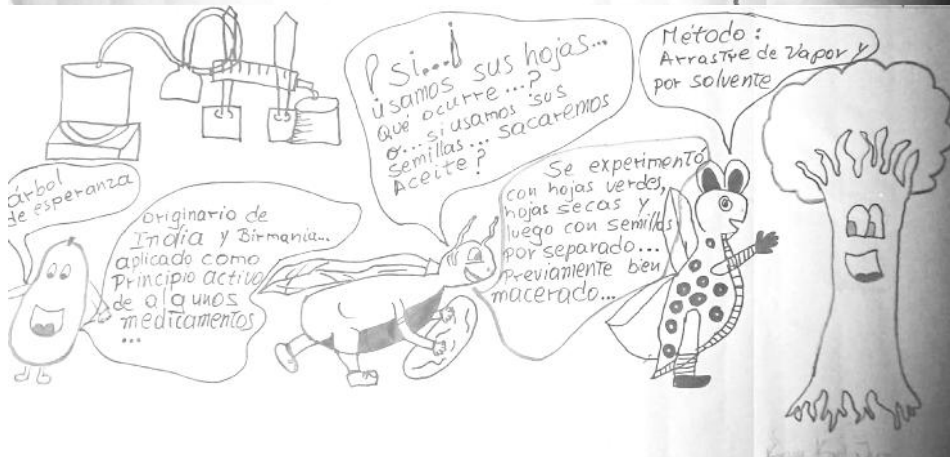 árbol
de esperanza
Originario de
India y Birmania...
aplicado como
Principio activo
de algunos
medicamentos
...
¿ si...!
usamos sus hojas...
qué ocurre...?
o... si usamos sus
semillas... sacaremos
Aceite?
Se experimentó
con hojas verdes,
hojas secas y
luego con semillas
por separado...
Previamente bien
macerado...
Método:
Arrastre de Vapor y
por solvente